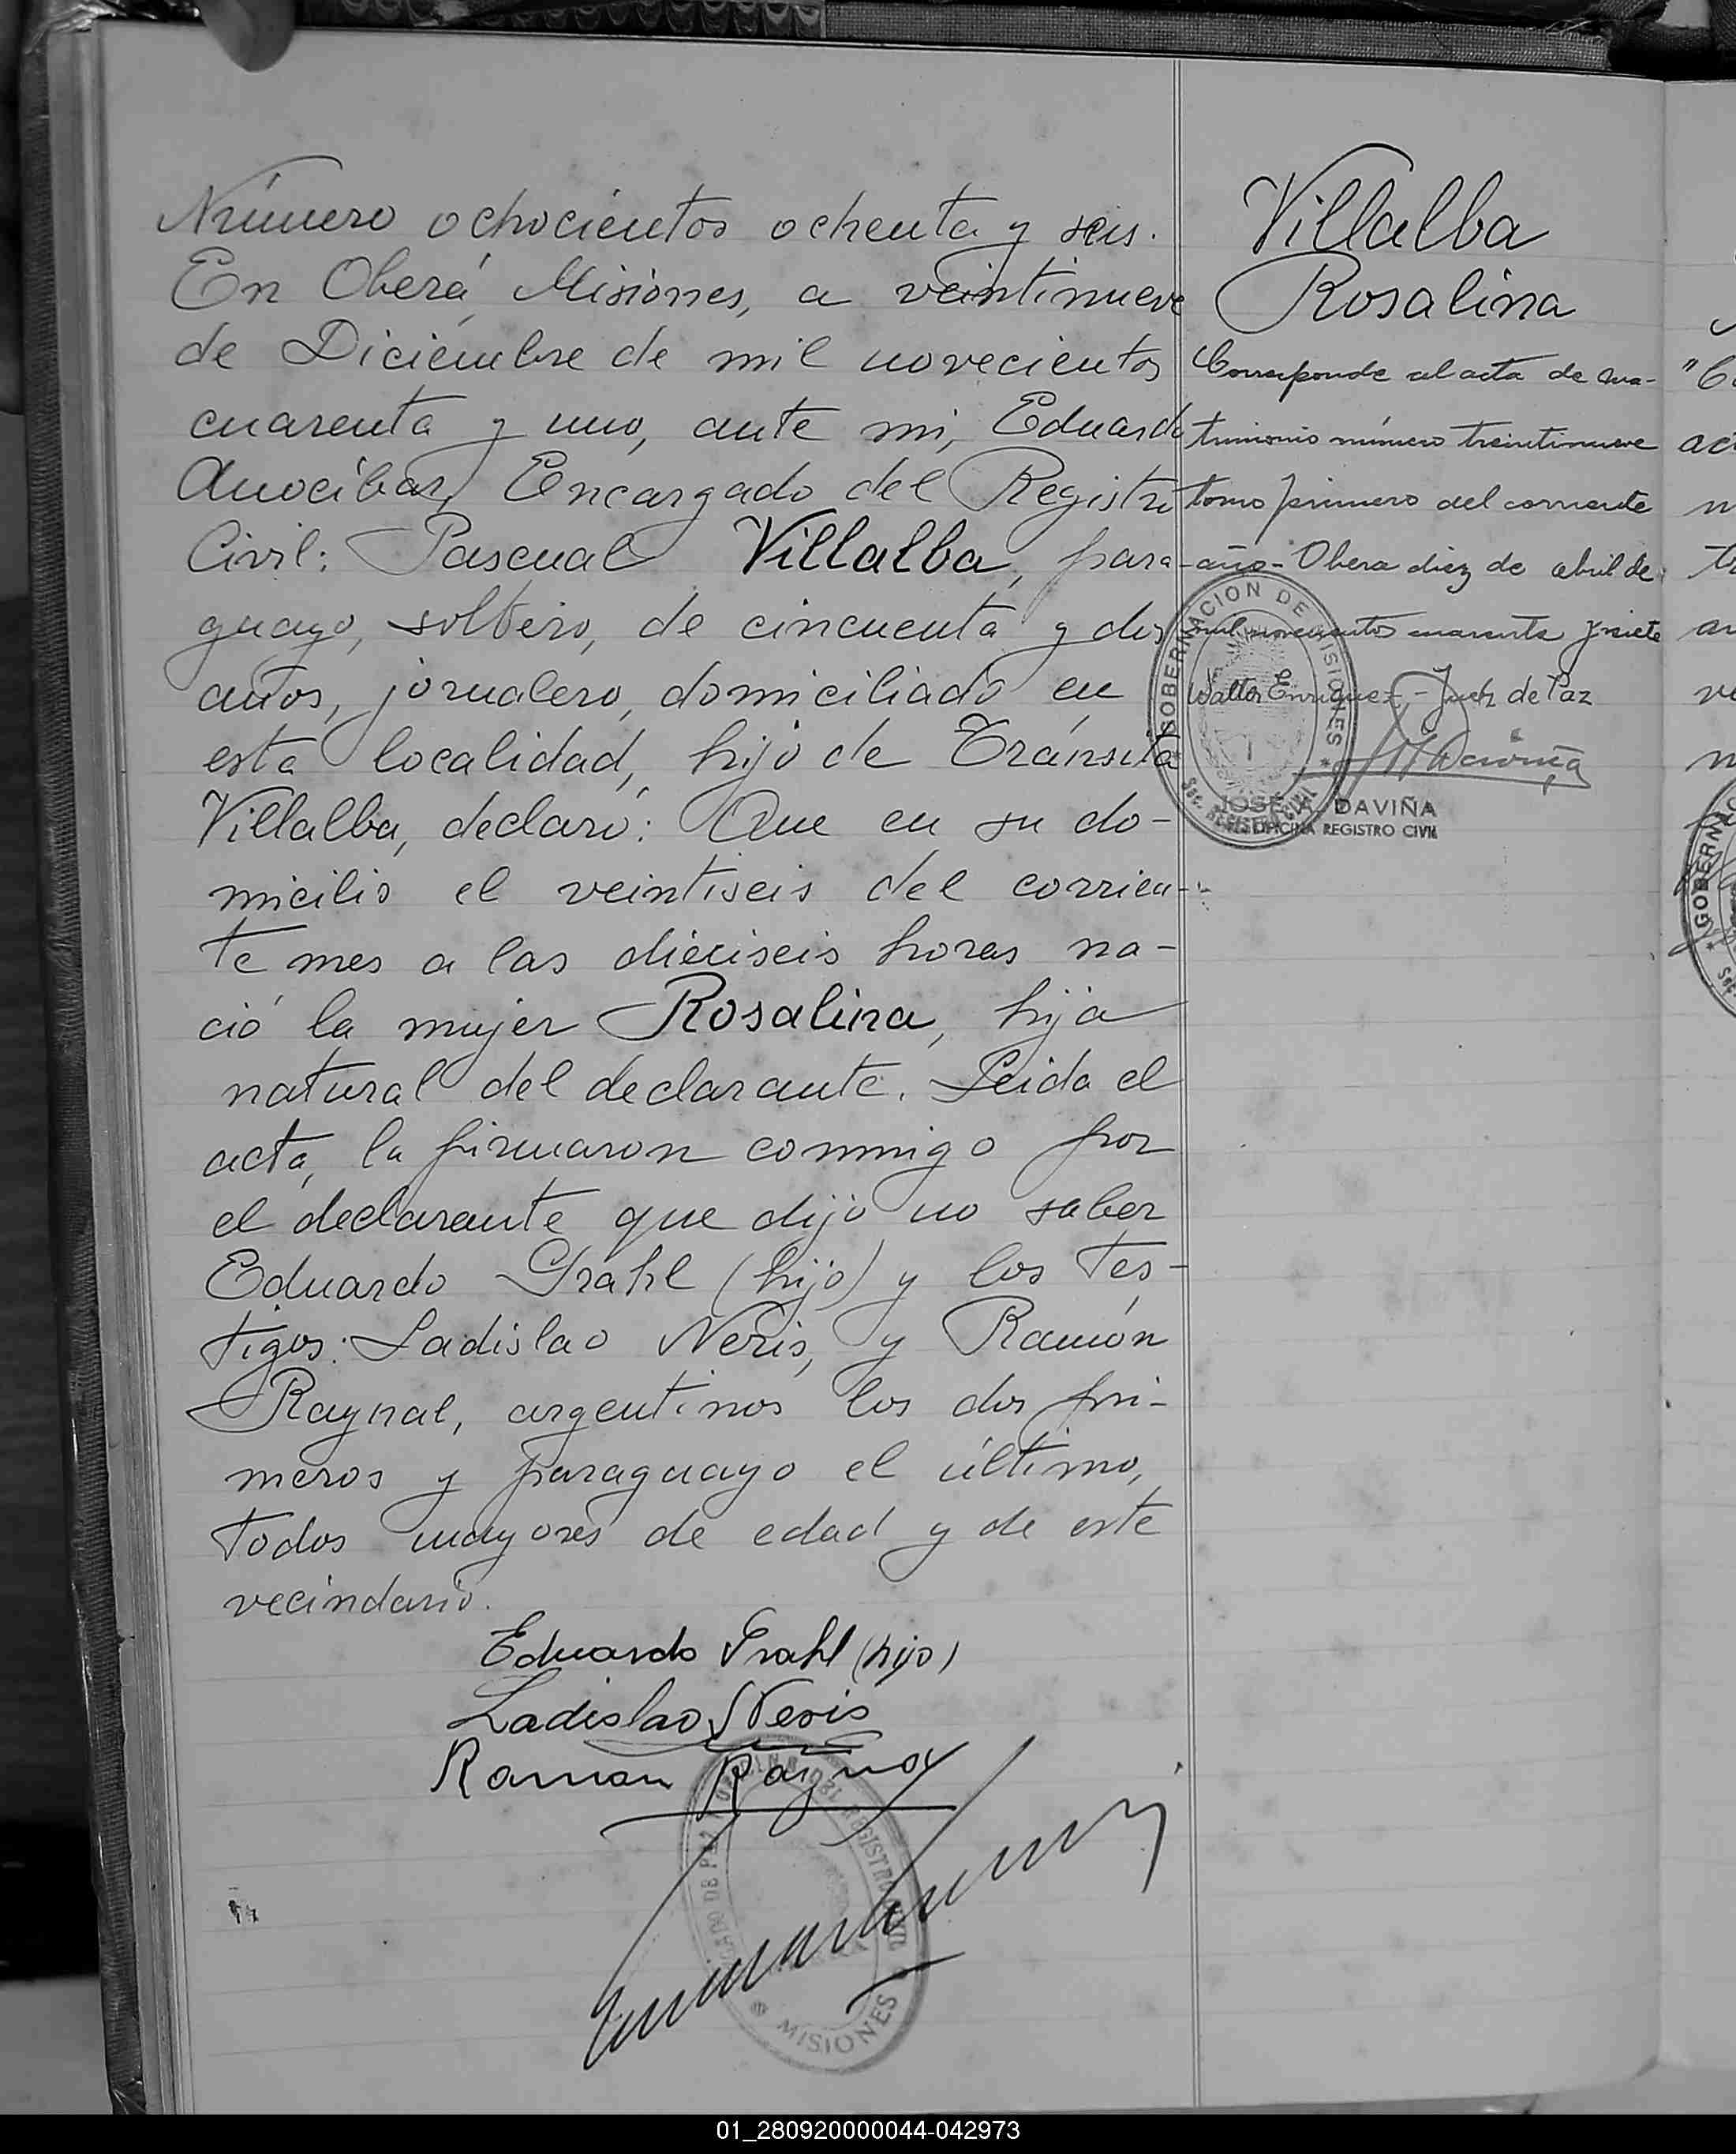 Número ochocientos ochenta y seis.
En Oberá, Misiones, a veintinueve
de Diciembre de mil novecientos
cuarenta y uno, ante mi, Eduardo
Anocíbar, Encargado del Registro
Civil: Pascual Villalba, para-
guayo, soltero, de cincuenta y dos
años, jornalero, domiciliado en
esta localidad, hijo de Tránsita
Villalba, declaró: Que en su do-
micilio el veintiseis del corrien-
te mes a las dieciseis horas na-
ció la mujer Rosalina, hija
natural del declarante. Leida el
acta, la firmaron conmigo por
el declarante que dijo no saber
Eduardo Grahl (hijo) y los tes-
tigos: Ladislao Neris, y Ramón
Raynal, argentinos los dos pri-
meros y paraguayo el último,
todos mayores de edad y de este
vecindario.
Eduardo Grahl (hijo)
Ladislao Neris
Ramon Raynal
MISIONES
Villalba
Rosalina
Corresponde al acta de ma-
trimonio número treintinueve
tomo primero del corriente
año - Obera diez de abril de
mil novecientos cuarenta y siete
Walter Enriquez - Juez de Paz
GOBERNACION DE MISIONES
Sec. REGISTRO CIVIL
JOSE A. DAVIÑA
OFICINA REGISTRO CIVIL
GOBERN
01_280920000044-042973